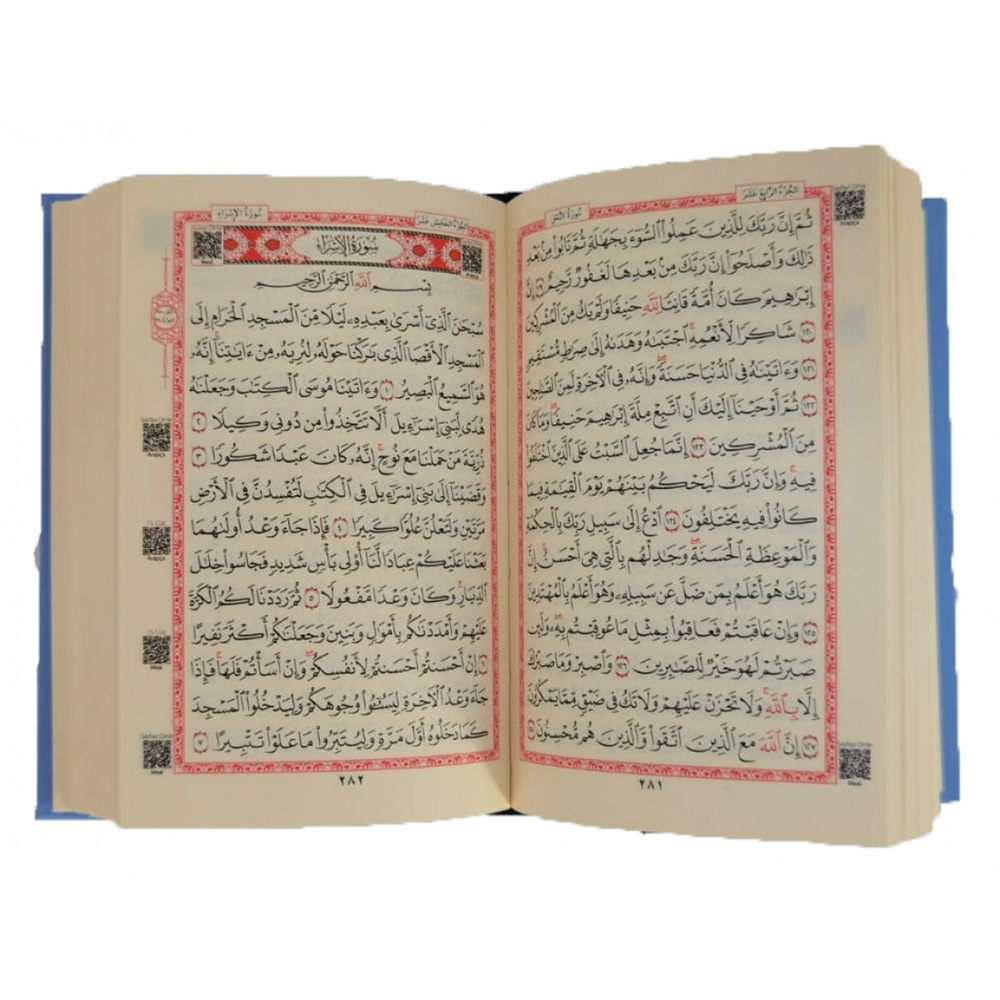 الجزء الرابع عشر
سورة النحل
ثُمَّ إِنَّ رَبَّكَ لِلَّذِينَ عَمِلُوا۟ ٱلسُّوٓءَ بِجَهَٰلَةٍ ثُمَّ تَابُوا۟ مِنۢ بَعْدِ
ذَٰلِكَ وَأَصْلَحُوٓا۟ إِنَّ رَبَّكَ مِنۢ بَعْدِهَا لَغَفُورٌ رَّحِيمٌ ١١٩ إِنَّ
إِبْرَٰهِيمَ كَانَ أُمَّةً قَانِتًا لِّلَّهِ حَنِيفًا وَلَمْ يَكُ مِنَ ٱلْمُشْرِكِينَ
١٢٠ شَاكِرًا لِّأَنْعُمِهِ ۚ ٱجْتَبَىٰهُ وَهَدَىٰهُ إِلَىٰ صِرَٰطٍ مُّسْتَقِيمٍ
١٢١ وَءَاتَيْنَٰهُ فِى ٱلدُّنْيَا حَسَنَةً ۖ وَإِنَّهُۥ فِى ٱلْءَاخِرَةِ لَمِنَ ٱلصَّٰلِحِينَ
١٢٢ ثُمَّ أَوْحَيْنَآ إِلَيْكَ أَنِ ٱتَّبِعْ مِلَّةَ إِبْرَٰهِيمَ حَنِيفًا ۖ وَمَا كَانَ
مِنَ ٱلْمُشْرِكِينَ ١٢٣ إِنَّمَا جُعِلَ ٱلسَّبْتُ عَلَى ٱلَّذِينَ ٱخْتَلَفُوا۟
فِيهِ ۚ وَإِنَّ رَبَّكَ لَيَحْكُمُ بَيْنَهُمْ يَوْمَ ٱلْقِيَٰمَةِ فِيمَا
كَانُوا۟ فِيهِ يَخْتَلِفُونَ ١٢٤ ٱدْعُ إِلَىٰ سَبِيلِ رَبِّكَ بِٱلْحِكْمَةِ
وَٱلْمَوْعِظَةِ ٱلْحَسَنَةِ ۖ وَجَٰدِلْهُم بِٱلَّتِى هِىَ أَحْسَنُ ۚ إِنَّ
رَبَّكَ هُوَ أَعْلَمُ بِمَن ضَلَّ عَن سَبِيلِهِۦ ۖ وَهُوَ أَعْلَمُ بِٱلْمُهْتَدِينَ
١٢٥ وَإِنْ عَاقَبْتُمْ فَعَاقِبُوا۟ بِمِثْلِ مَا عُوقِبْتُم بِهِۦ ۖ وَلَئِن
صَبَرْتُمْ لَهُوَ خَيْرٌ لِّلصَّٰبِرِينَ ١٢٦ وَٱصْبِرْ وَمَا صَبْرُكَ
إِلَّا بِٱللَّهِ ۚ وَلَا تَحْزَنْ عَلَيْهِمْ وَلَا تَكُ فِى ضَيْقٍ مِّمَّا يَمْكُرُونَ
١٢٧ إِنَّ ٱللَّهَ مَعَ ٱلَّذِينَ ٱتَّقَوا۟ وَّٱلَّذِينَ هُم مُّحْسِنُونَ
٢٨١
الجزء الخامس عشر
سورة الإسراء
سُورَةُ الإِسْرَاءِ
بِسْمِ ٱللَّهِ ٱلرَّحْمَٰنِ ٱلرَّحِيمِ
سُبْحَٰنَ ٱلَّذِىٓ أَسْرَىٰ بِعَبْدِهِۦ لَيْلًا مِّنَ ٱلْمَسْجِدِ ٱلْحَرَامِ إِلَى
ٱلْمَسْجِدِ ٱلْأَقْصَا ٱلَّذِى بَٰرَكْنَا حَوْلَهُۥ لِنُرِيَهُۥ مِنْ ءَايَٰتِنَآ ۚ إِنَّهُۥ
هُوَ ٱلسَّمِيعُ ٱلْبَصِيرُ ١ وَءَاتَيْنَا مُوسَى ٱلْكِتَٰبَ وَجَعَلْنَٰهُ
هُدًى لِّبَنِىٓ إِسْرَٰٓءِيلَ أَلَّا تَتَّخِذُوا۟ مِن دُونِى وَكِيلًا ٢
ذُرِّيَّةَ مَنْ حَمَلْنَا مَعَ نُوحٍ ۚ إِنَّهُۥ كَانَ عَبْدًا شَكُورًا ٣
وَقَضَيْنَآ إِلَىٰ بَنِىٓ إِسْرَٰٓءِيلَ فِى ٱلْكِتَٰبِ لَتُفْسِدُنَّ فِى ٱلْأَرْضِ
مَرَّتَيْنِ وَلَتَعْلُنَّ عُلُوًّا كَبِيرًا ٤ فَإِذَا جَآءَ وَعْدُ أُولَىٰهُمَا
بَعَثْنَا عَلَيْكُمْ عِبَادًا لَّنَآ أُو۟لِى بَأْسٍ شَدِيدٍ فَجَاسُوا۟ خِلَٰلَ
ٱلدِّيَارِ ۚ وَكَانَ وَعْدًا مَّفْعُولًا ٥ ثُمَّ رَدَدْنَا لَكُمُ ٱلْكَرَّةَ
عَلَيْهِمْ وَأَمْدَدْنَٰكُم بِأَمْوَٰلٍ وَبَنِينَ وَجَعَلْنَٰكُمْ أَكْثَرَ نَفِيرًا
٦ إِنْ أَحْسَنتُمْ أَحْسَنتُمْ لِأَنفُسِكُمْ ۖ وَإِنْ أَسَأْتُمْ فَلَهَا ۚ فَإِذَا
جَآءَ وَعْدُ ٱلْءَاخِرَةِ لِيَسُۥٓـُٔوا۟ وُجُوهَكُمْ وَلِيَدْخُلُوا۟ ٱلْمَسْجِدَ
كَمَا دَخَلُوهُ أَوَّلَ مَرَّةٍ وَلِيُتَبِّرُوا۟ مَا عَلَوْا۟ تَتْبِيرًا ٧
٢٨٢